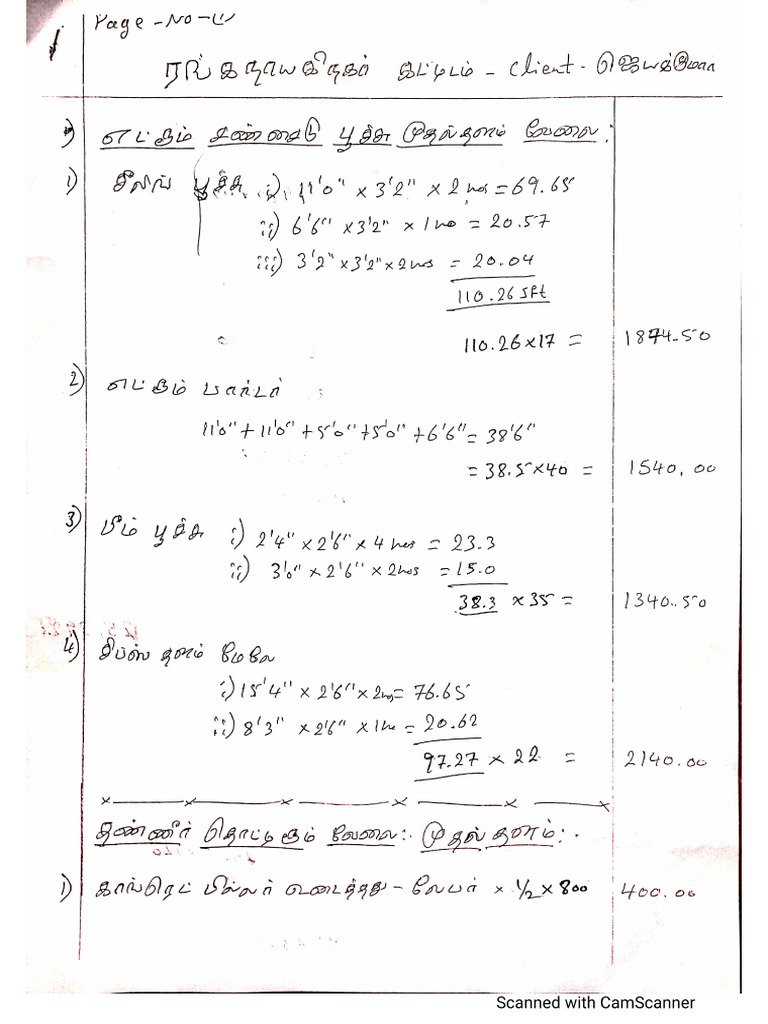 Page - No - ①
ரங்கநாயகிநகர் கட்டிடம் - Client - ஜெயக்குமார்
எட்ரூம் சன்சைடு பூச்சு முதல்தளம் வேலை:
1) சீலிங் பூச்சு i) 11'0" x 3'2" x 2 nos = 69.65
ii) 6'6" x 3'2" x 1 no = 20.57
iii) 3'2" x 3'2" x 2 nos = 20.04
110.26 Sft
110.26 x 17 = 1874.50
2) எட்ரூம் பார்டர் :
11'0" + 11'0" + 5'0" + 5'0" + 6'6" = 38'6"
= 38.5 x 40 = 1540.00
3) பீம் பூச்சு i) 2'4" x 2'6" x 4 nos = 23.3
ii) 3'0" x 2'6" x 2 nos = 15.0
38.3 x 35 = 1340.50
4) சிப்ஸ் தளம் மேலே
i) 15'4" x 2'6" x 2 no = 76.65
ii) 8'3" x 2'6" x 1 no = 20.62
97.27 x 22 = 2140.00
தண்ணீர் தொட்டிரூம் வேலை: முதல்தளம்:
1) காங்ரெட் பில்லர் உடைத்தது - லேபர் x ½ x 800 400.00
Scanned with CamScanner